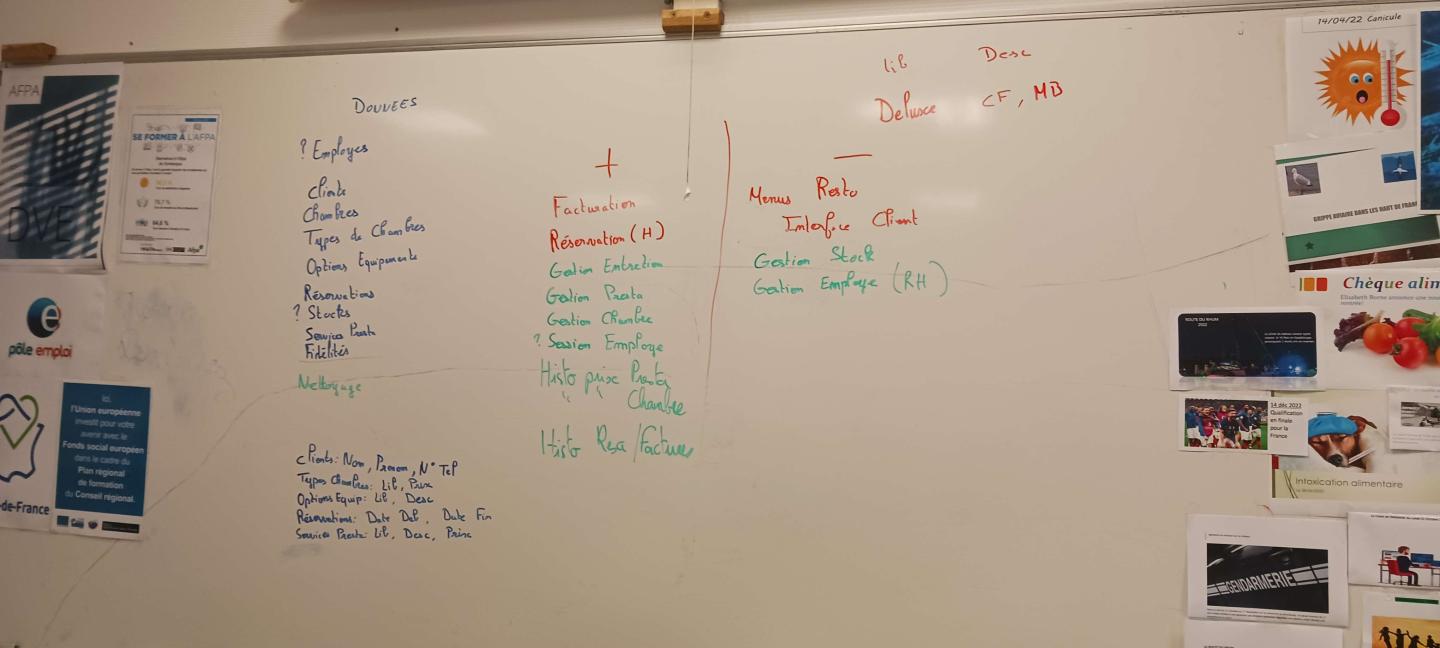 AFPA
DVE
SE FORMER À L'AFPA
pôle emploi
Ici,
l'Union européenne
investit pour votre
avenir avec le
Fonds social européen
dans le cadre du
Plan régional
de formation
du Conseil régional.
-de-France
DONNEES
? Employes
Clients
Chambres
Types de Chambres
Options Equipements
Réservations
? Stocks
Services Presta
Fidélités
Nettoyage
Clients: Nom, Prenom, N° Tel
Types Chambres: Lib, Prix
Options Equip: Lib, Desc
Réservations: Date Deb, Date Fin
Services Presta: Lib, Desc, Prix
+
Facturation
Réservation (H)
Gestion Entretien
Gestion Presta
Gestion Chambre
? Session Employe
Histo prix Presta
" " Chambre
Histo Resa/Factures
lib Desc
Deluxe CF, MB
—
Menus Resto
Interface Client
Gestion Stock
Gestion Employe (RH)
14/04/22 Canicule
GRIPPE AVIAIRE DANS LES HAUT DE FRAN
Chèque alim
Elisabeth Borne annonce une nou
rentrée!
ROUTE DU RHUM
2022
14 déc 2022
Qualification
en finale
pour la
France
Intoxication alimentaire
GENDARMERIE